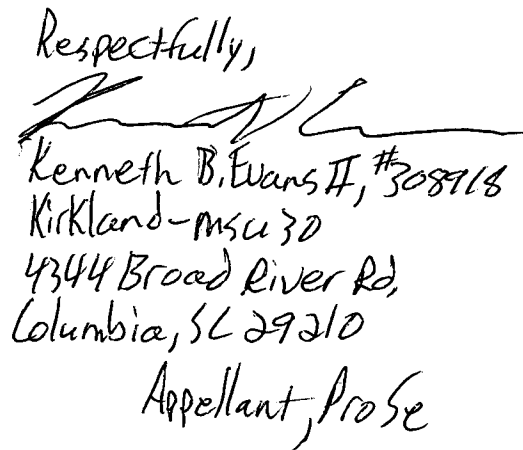 Respectfully,
Kenneth B. Evans II, #308918
Kirkland-msu 30
4344 Broad River Rd,
Columbia, SC 29210
Appellant, Pro Se